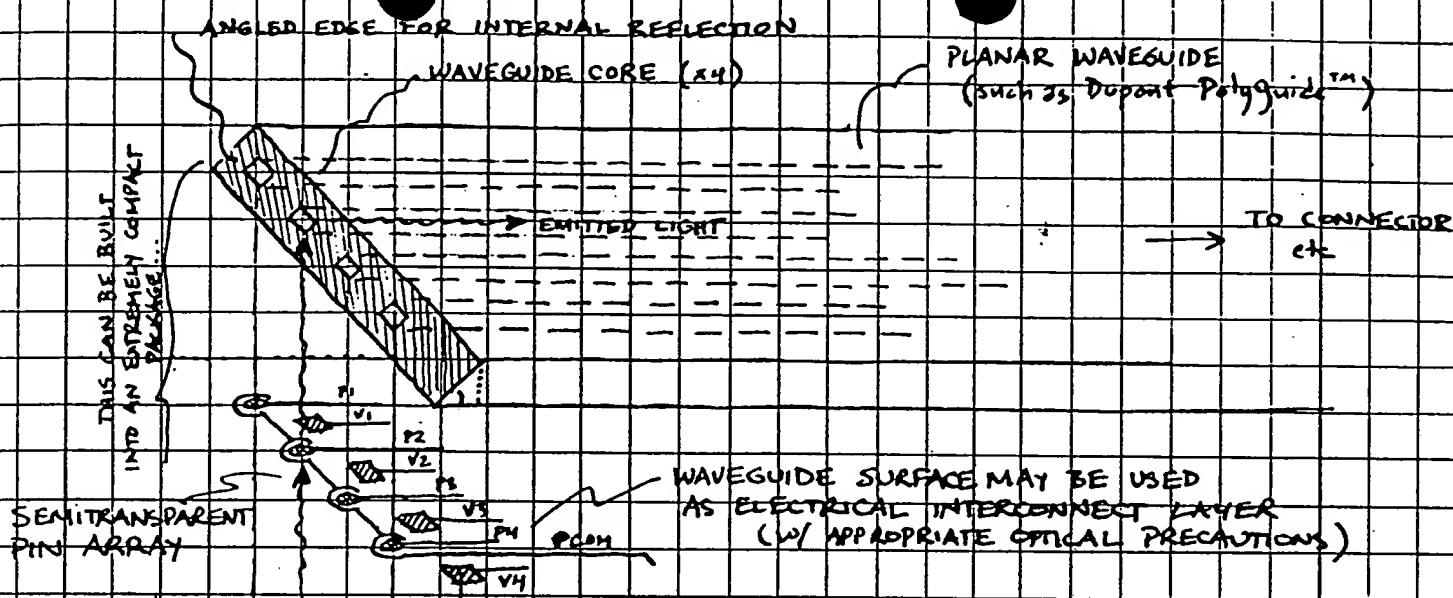 ANGLED EDGE FOR INTERNAL REFLECTION
WAVEGUIDE CORE (x4)
PLANAR WAVEGUIDE
(such as Dupont Polyguide™)
THIS CAN BE BUILT
INTO AN EXTREMELY COMPACT
PACKAGE...
EMITTED LIGHT
TO CONNECTOR
etc
P1
V1
P2
V2
P3
V3
P4
PCOM
V4
SEMITRANSPARENT
PIN ARRAY
WAVEGUIDE SURFACE MAY BE USED
AS ELECTRICAL INTERCONNECT LAYER
(W/ APPROPRIATE OPTICAL PRECAUTIONS)